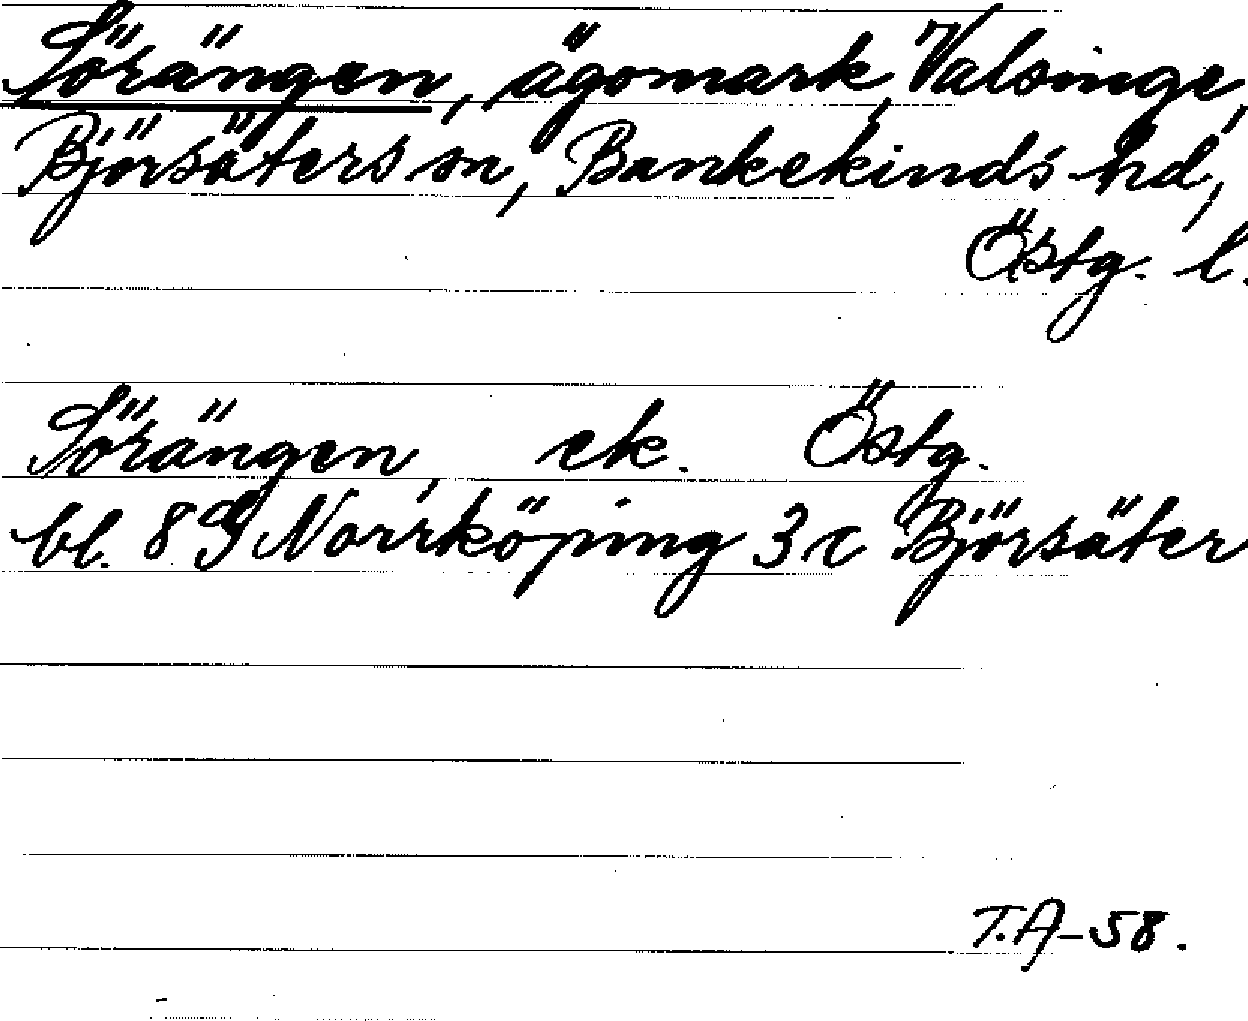 Sörängen, ägomark, Valsinge,
Björsäters sn, Bankekinds hd,
Östg. l.
Sörängen, ek. Östg.
bl. 8 G Norrköping 3 c Björsäter
T.A-58.